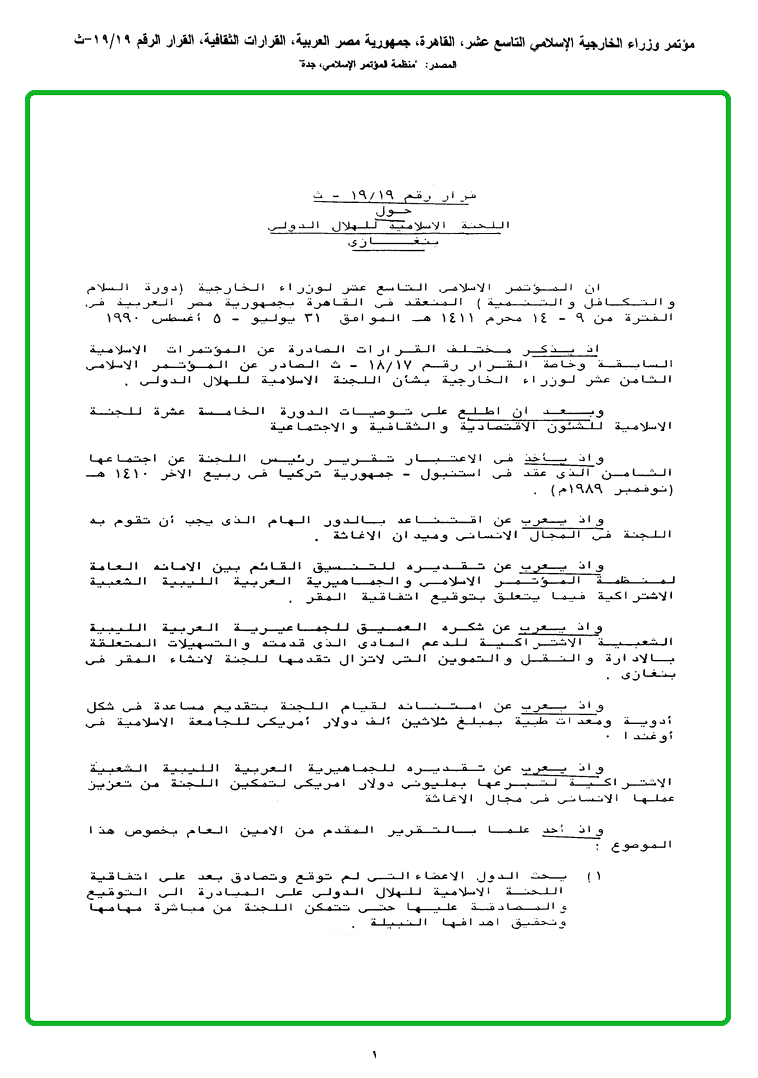 مؤتمر وزراء الخارجية الإسلامي التاسع عشر، القاهرة، جمهورية مصر العربية، القرارات الثقافية، القرار الرقم ١٩/١٩-ث
المصدر: "منظمة المؤتمر الإسلامي، جدة"
قرار رقم ١٩/١٩ - ث
حول
اللجنة الاسلامية للهلال الدولى
بنغازى
ان المؤتمر الاسلامى التاسع عشر لوزراء الخارجية (دورة السلام
والتكافل والتنمية) المنعقد فى القاهرة بجمهورية مصر العربية فى
الفترة من ٩ - ١٤ محرم ١٤١١ هـ الموافق ٣١ يوليو - ٥ أغسطس ١٩٩٠
اذ يذكر مختلف القرارات الصادرة عن المؤتمرات الاسلامية
السابقة وخاصة القرار رقم ١٨/١٧ - ث الصادر عن المؤتمر الاسلامى
الثامن عشر لوزراء الخارجية بشأن اللجنة الاسلامية للهلال الدولى .
وبعد ان اطلع على توصيات الدورة الخامسة عشرة للجنة
الاسلامية للشئون الاقتصادية والثقافية والاجتماعية
واذ يأخذ فى الاعتبار تقرير رئيس اللجنة عن اجتماعها
الشامن الذى عقد فى استنبول - جمهورية تركيا فى ربيع الاخر ١٤١٠ هـ
(نوفمبر ١٩٨٩م) .
واذ يعرب عن اقتناعه بالدور الهام الذى يجب أن تقوم به
اللجنة فى المجال الانسانى وميدان الاغاثة .
واذ يعرب عن تقديره للتنسيق القائم بين الامانه العامة
لمنظمة المؤتمر الاسلامى والجماهيرية العربية الليبية الشعبية
الاشتراكية فيما يتعلق بتوقيع اتفاقية المقر .
واذ يعرب عن شكره العميق للجماهيرية العربية الليبية
الشعبية الاشتراكية للدعم المادى الذى قدمته والتسهيلات المتعلقة
بالادارة والنقل والتموين التى لاتزال تقدمها للجنة لانشاء المقر فى
بنغازى .
واذ يعرب عن امتنانه لقيام اللجنة بتقديم مساعدة فى شكل
أدوية ومعدات طبية بمبلغ ثلاثين ألف دولار أمريكى للجامعة الاسلامية فى
أوغندا .
واذ يعرب عن تقديره للجماهيرية العربية الليبية الشعبية
الاشتراكية لتبرعها بمليونى دولار امريكى لتمكين اللجنة من تعزيز
عملها الانسانى فى مجال الاغاثة
واذ أحد علما بالتقرير المقدم من الامين العام بخصوص هذا
الموضوع :
١) يحث الدول الاعضاء التى لم توقع وتصادق بعد على اتفاقية
اللجنة الاسلامية للهلال الدولى على المبادرة الى التوقيع
والمصادقة عليها حتى تتمكن اللجنة من مباشرة مهامها
وتحقيق اهدافها النبيلة .
١